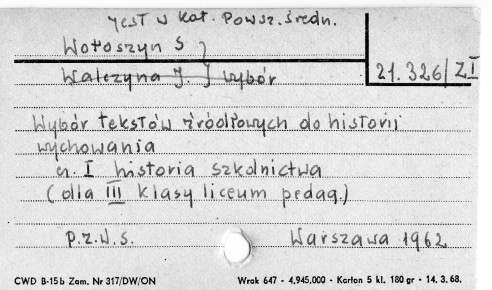 jest w Kat. Powsz. Średn.
Wołoszyn S
Walczyna J. } wybór
21.326/ZI
Wybór tekstów źródłowych do historii
wychowania
cz. I historia szkolnictwa
(dla III klasy liceum pedag.)
P.Z.W.S. Warszawa 1962
CWD B-15b Zam. Nr 317/DW/ON Wrak 647 - 4.945.000 - Karton 5 kl. 180 gr - 14. 3. 68.